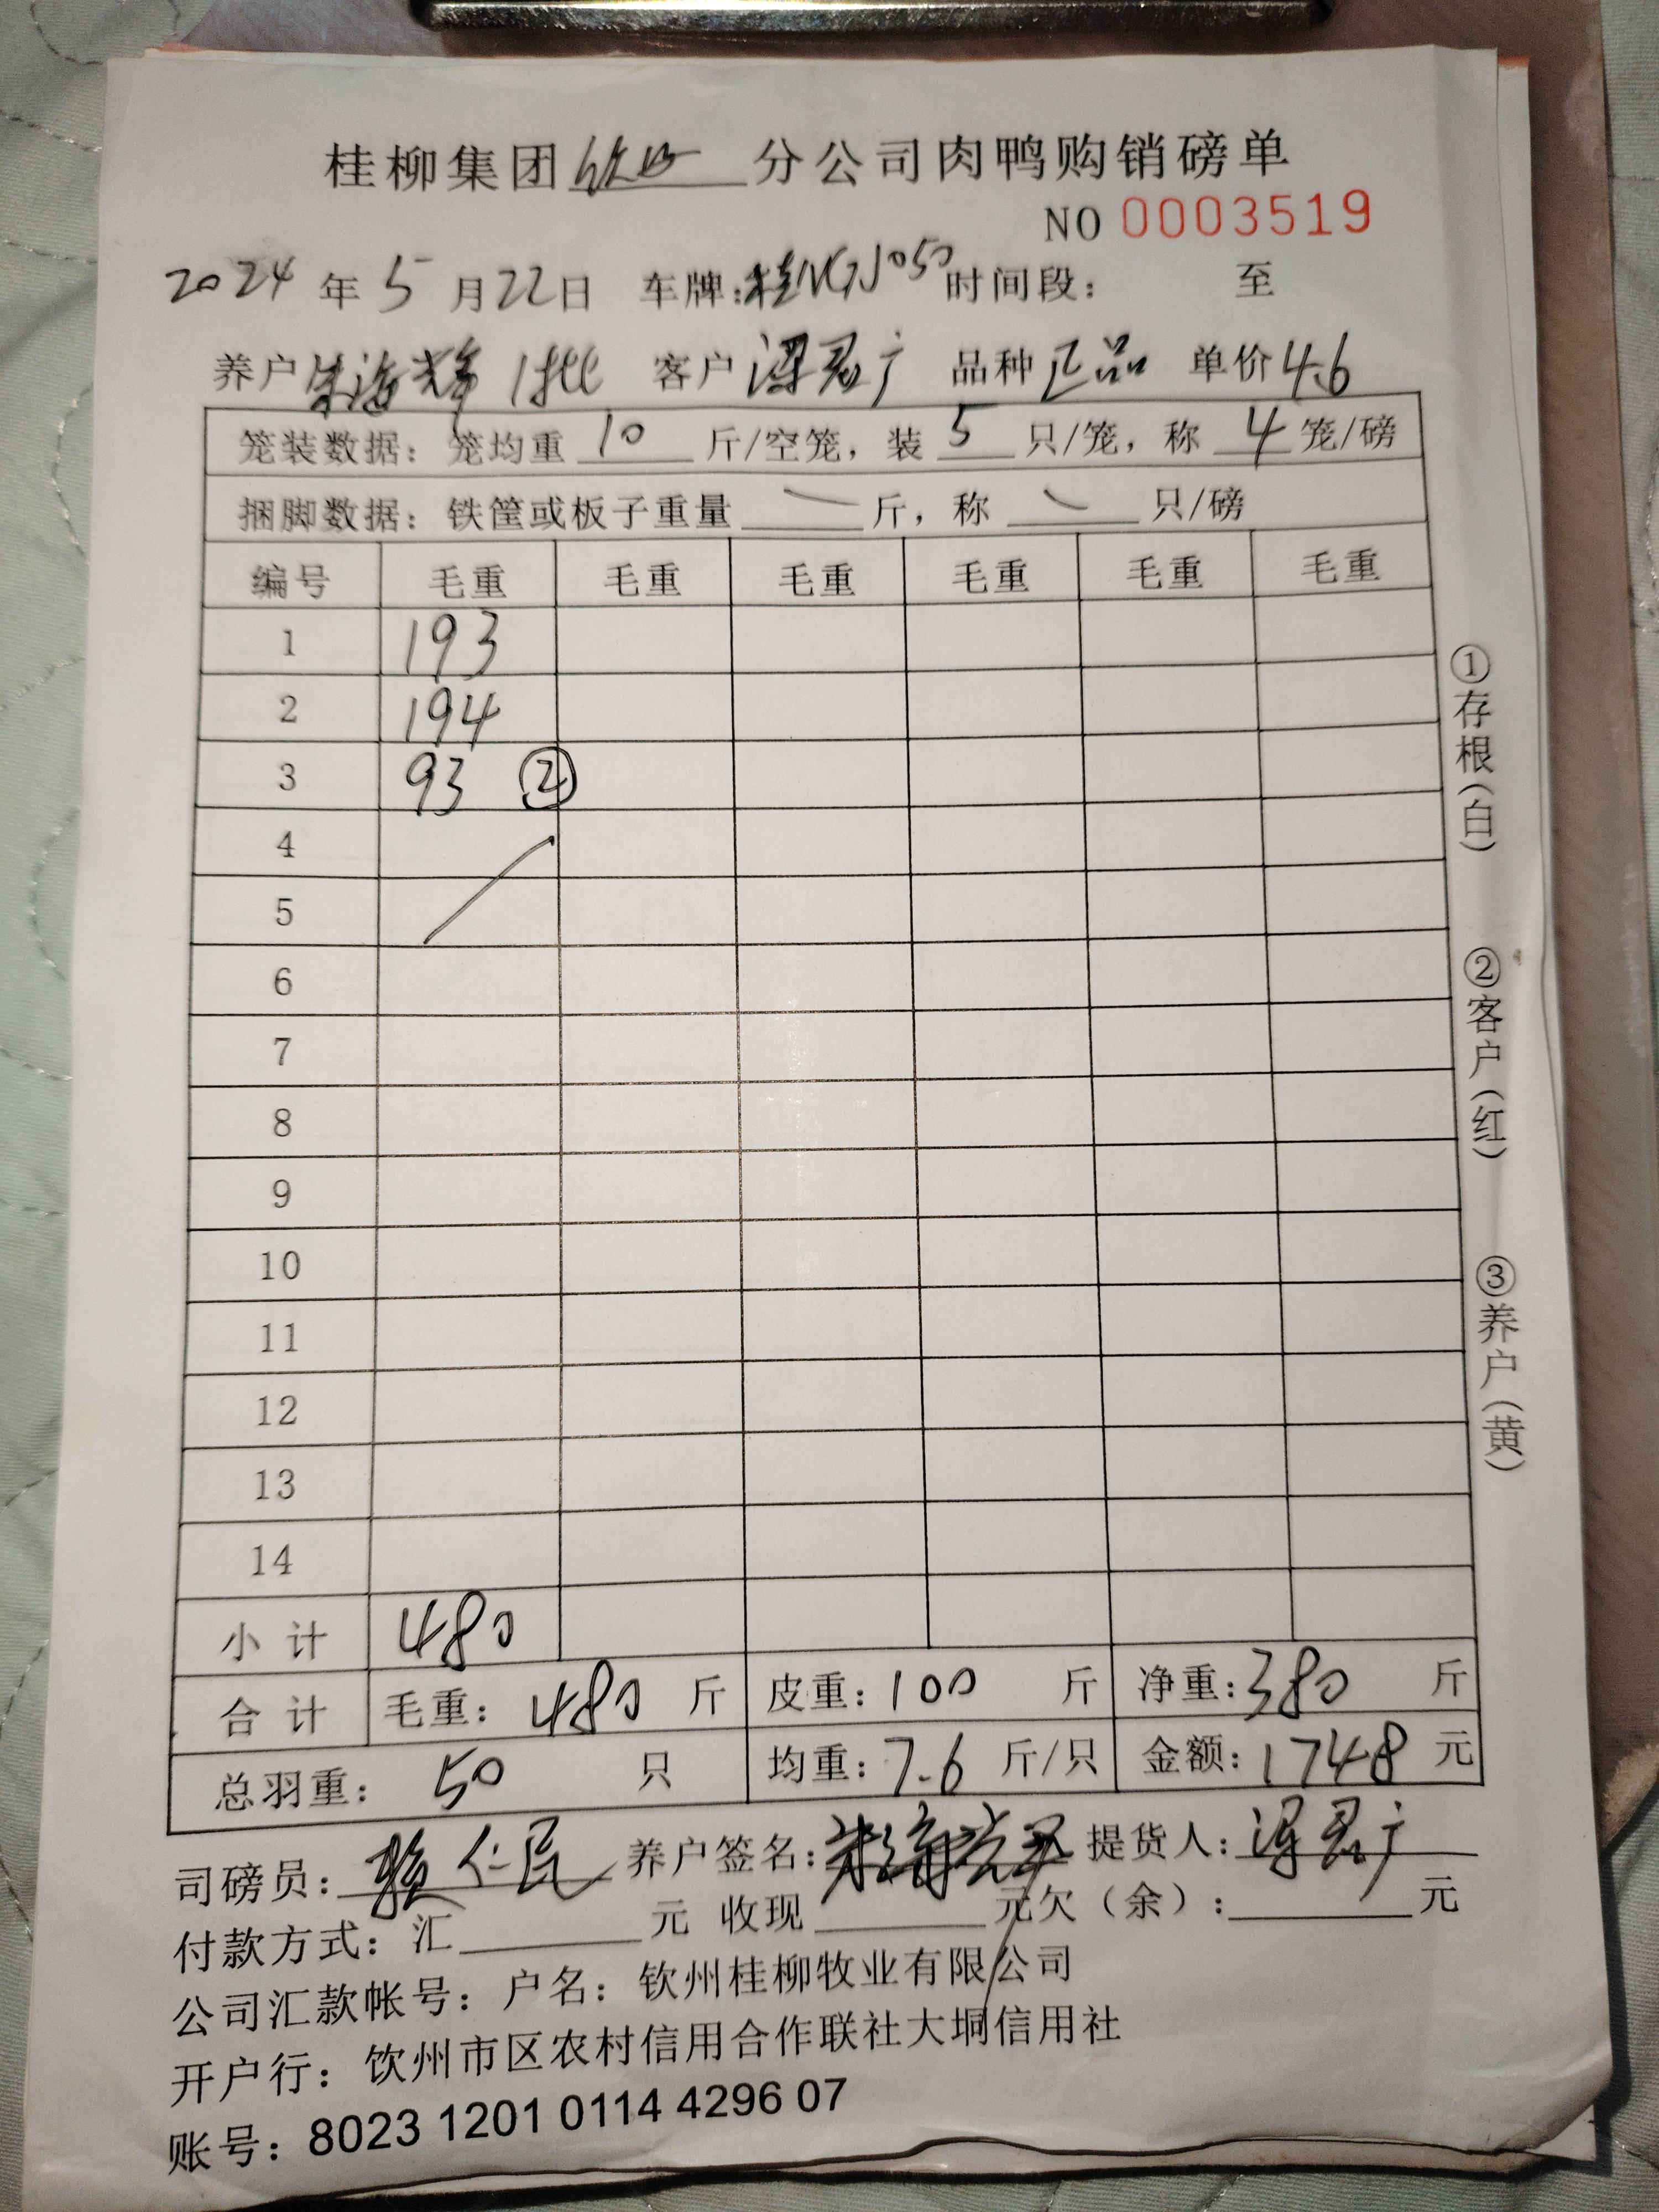 桂柳集团 钦州 分公司肉鸭购销磅单
NO 0003519
2024 年 5 月 22 日 车牌: 时间段: 至
养户 朱海 1批 客户 梁君广 品种 正品 单价 4.6
笼装数据: 笼均重 10 斤/空笼, 装 5 只/笼, 称 4 笼/磅
捆脚数据: 铁筐或板子重量 斤, 称 只/磅
编号 毛重 毛重 毛重 毛重 毛重 毛重
1 193
2 194
3 93 ②
4
5
6
7
8
9
10
11
12
13
14
小计 480
合计 毛重: 480 斤 皮重: 100 斤 净重: 380 斤
总羽重: 50 只 均重: 7.6 斤/只 金额: 1748 元
司磅员: 仁民 养户签名: 提货人: 梁君广
付款方式: 汇 元 收现 元欠(余): 元
公司汇款帐号: 户名: 钦州桂柳牧业有限公司
开户行: 钦州市区农村信用合作联社大垌信用社
账号: 8023 1201 0114 4296 07
①存根(白)
②客户(红)
③养户(黄)